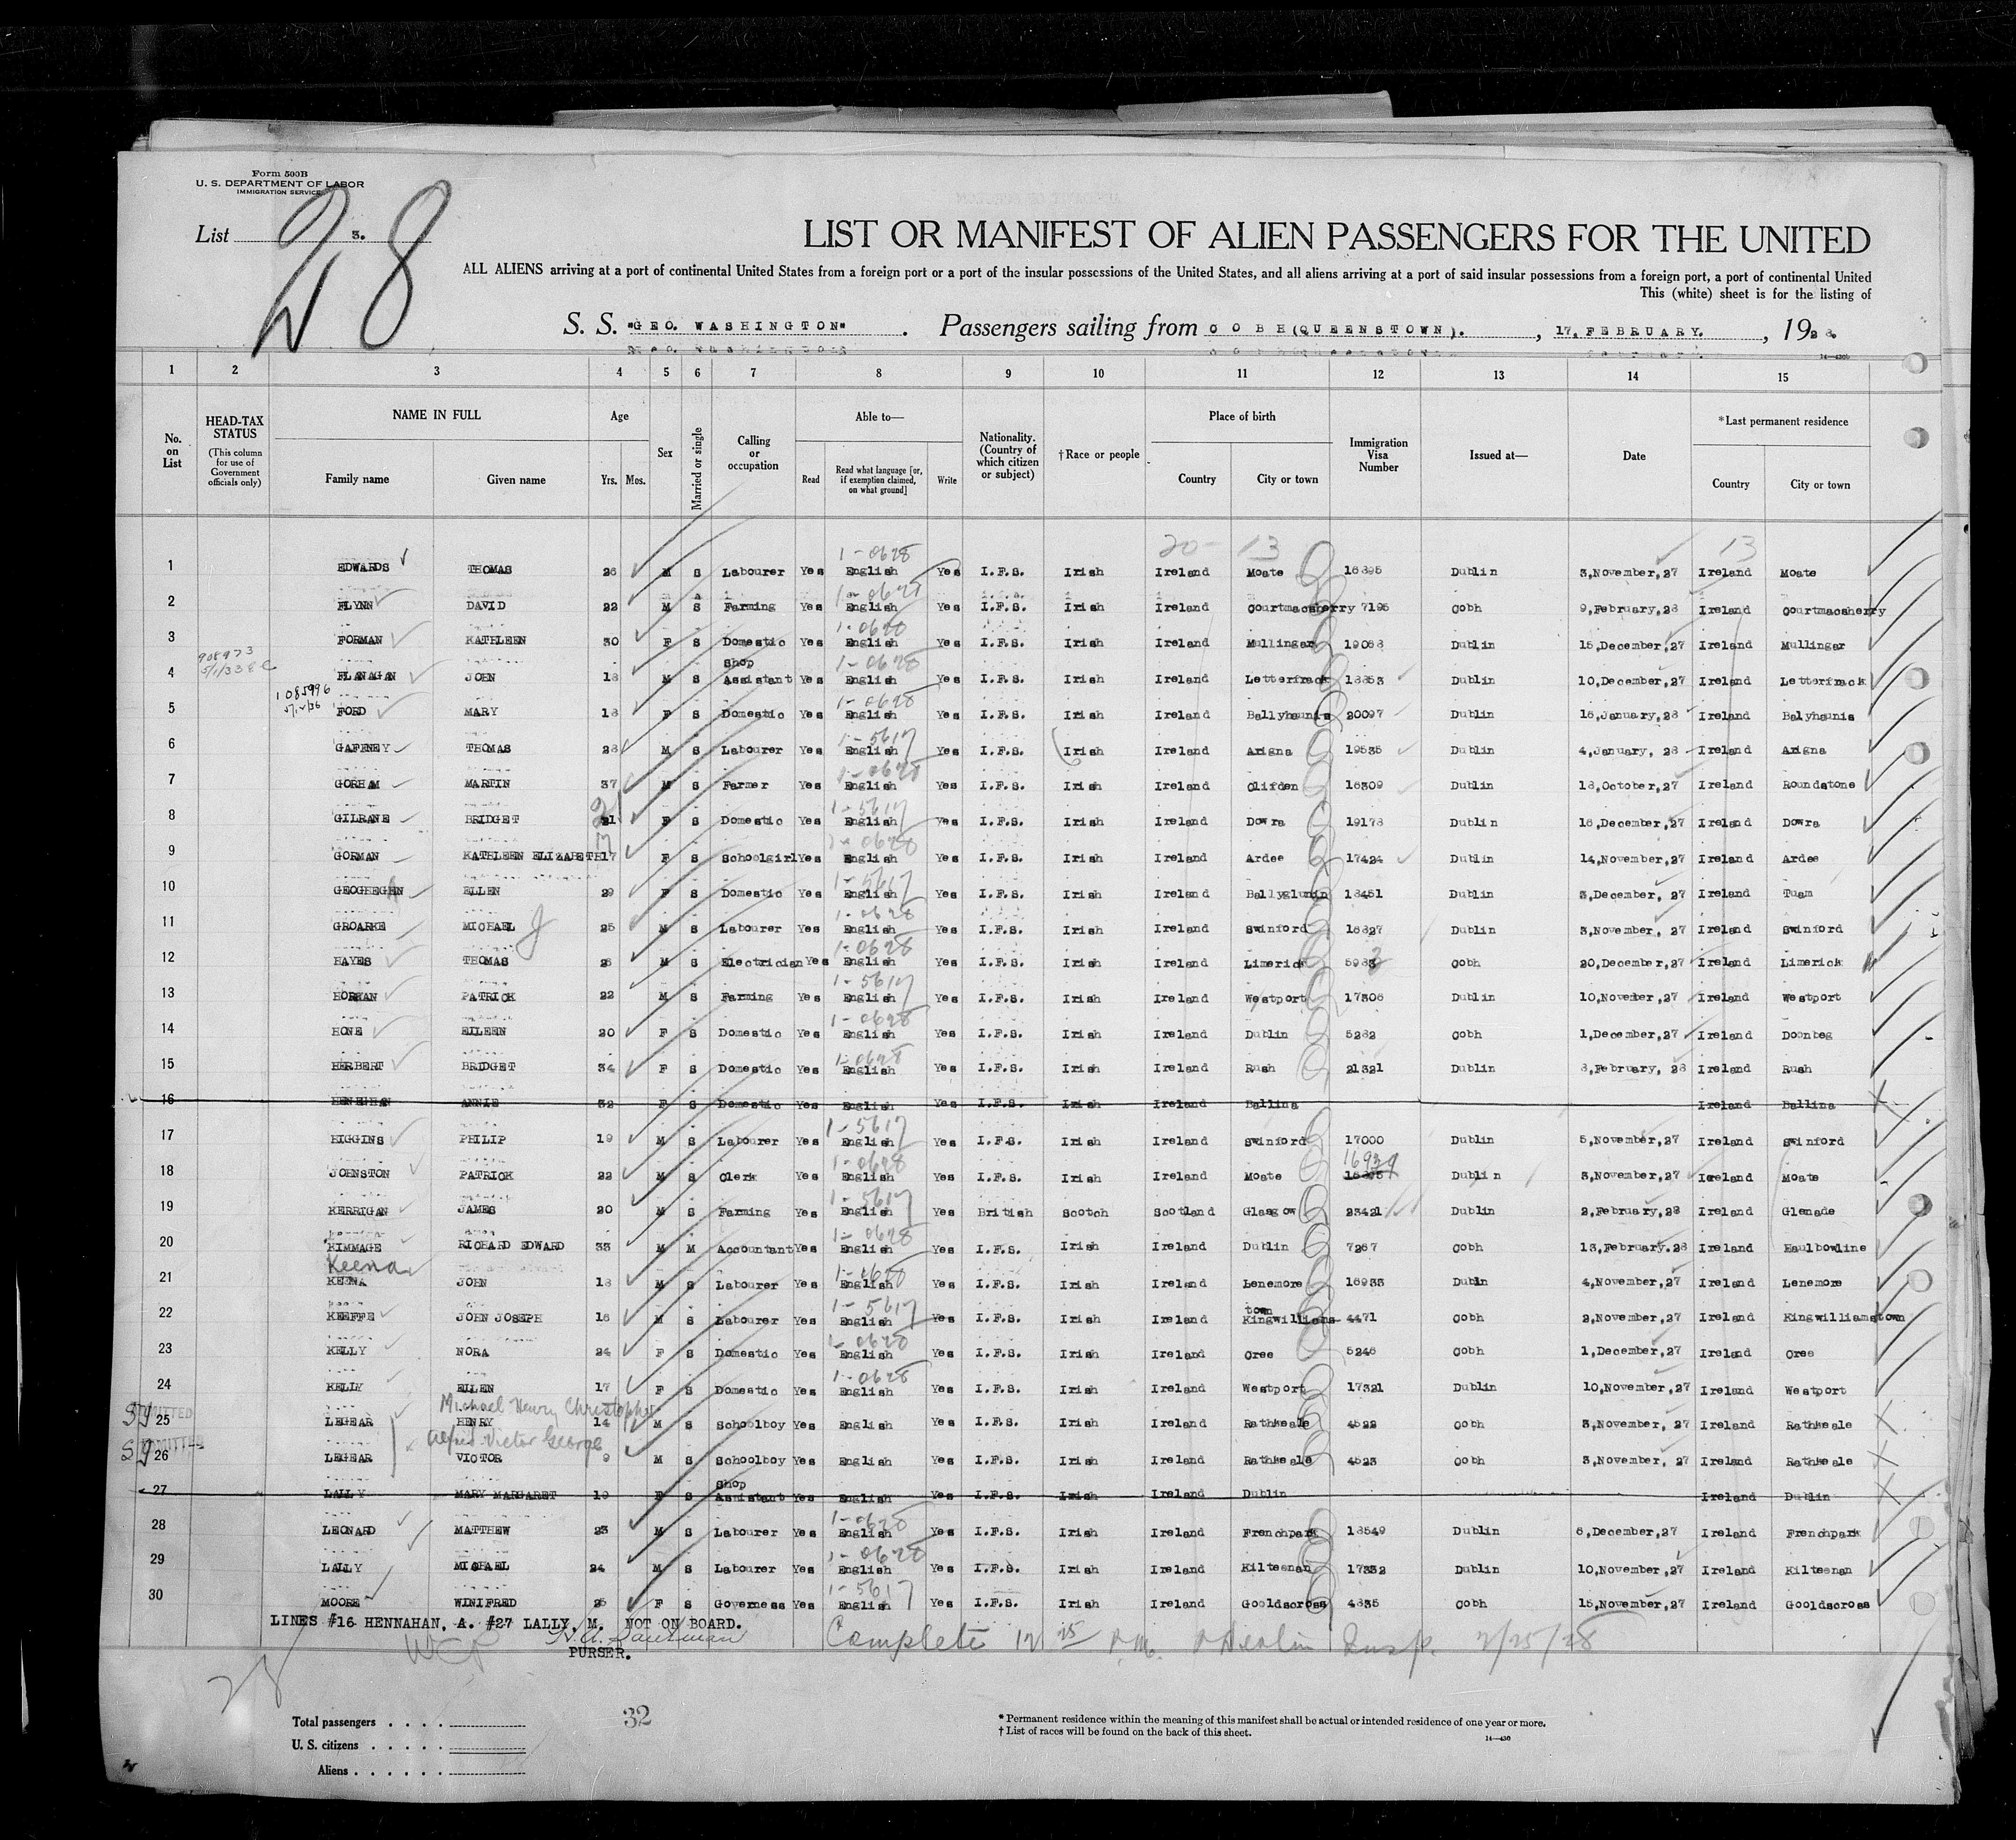 Form 500B
U. S. DEPARTMENT OF LABOR
IMMIGRATION SERVICE
List 3.
28
LIST OR MANIFEST OF ALIEN PASSENGERS FOR THE UNITED
ALL ALIENS arriving at a port of continental United States from a foreign port or a port of the insular possessions of the United States, and all aliens arriving at a port of said insular possessions from a foreign port, a port of continental United
This (white) sheet is for the listing of
S. S. "GEO. WASHINGTON". Passengers sailing from COBH(QUEENSTOWN). , 17, FEBRUARY. , 1928.
1 2 3 4 5 6 7 8 9 10 11 12 13 14 15
No. on List
HEAD-TAX STATUS (This column for use of Government officials only)
NAME IN FULL Family name Given name
Age Yrs. Mos.
Sex
Married or single
Calling or occupation
Able to— Read Read what language [or, if exemption claimed, on what ground] Write
Nationality. (Country of which citizen or subject)
†Race or people
Place of birth Country City or town
Immigration Visa Number
Issued at—
Date
*Last permanent residence Country City or town
20- 13 13
1-0628
1 EDWARDS THOMAS 26 M S Labourer Yes English Yes I.F.S. Irish Ireland Moate 16895 Dublin 3,November,27 Ireland Moate
1-0628
2 FLYNN DAVID 22 M S Farming Yes English Yes I.F.S. Irish Ireland Courtmacsherry 7195 Cobh 9,February,28 Ireland Courtmacsherry
1-0628
3 FORMAN KATHLEEN 30 F S Domestic Yes English Yes I.F.S. Irish Ireland Mullingar 19053 Dublin 15,December,27 Ireland Mullingar
908973
1-0628
4 FLANAGAN JOHN 18 M S Shop Assistant Yes English Yes I.F.S. Irish Ireland Letterfrack 18853 Dublin 10,December,27 Ireland Letterfrack
1085996
1-0628
5 FORD MARY 18 F S Domestic Yes English Yes I.F.S. Irish Ireland Ballyhaunis 20097 Dublin 16,January,28 Ireland Balyhaunis
1-5617
6 GAFFNEY THOMAS 28 M S Labourer Yes English Yes I.F.S. Irish Ireland Arigna 19535 Dublin 4,January, 28 Ireland Arigna
1-0628
7 GORHAM MARTIN 37 M S Farmer Yes English Yes I.F.S. Irish Ireland Clifden 16309 Dublin 18,October,27 Ireland Roundstone
1-5617
8 GILRANE BRIDGET 21 F S Domestic Yes English Yes I.F.S. Irish Ireland Dowra 19178 Dublin 16,December,27 Ireland Dowra
1-0628
9 GORMAN KATHLEEN ELIZABETH 17 F S Schoolgirl Yes English Yes I.F.S. Irish Ireland Ardee 17424 Dublin 14,November,27 Ireland Ardee
1-5617
10 GEOGHEGAN ELLEN 29 F S Domestic Yes English Yes I.F.S. Irish Ireland Ballyglunin 18451 Dublin 3,December, 27 Ireland Tuam
1-0628
11 GROARKE MICHAEL J 25 M S Labourer Yes English Yes I.F.S. Irish Ireland Swinford 16827 Dublin 3,November, 27 Ireland Swinford
1-0628
12 HAYES THOMAS 26 M S Electrician Yes English Yes I.F.S. Irish Ireland Limerick 5983 Cobh 20,December,27 Ireland Limerick
1-5617
13 HORKAN PATRICK 22 M S Farming Yes English Yes I.F.S. Irish Ireland Westport 17306 Dublin 10,November,27 Ireland Westport
1-0628
14 HONE EILEEN 20 F S Domestic Yes English Yes I.F.S. Irish Ireland Dublin 5282 Cobh 1,December,27 Ireland Doonbeg
1-0628
15 HERBERT BRIDGET 34 F S Domestic Yes English Yes I.F.S. Irish Ireland Rush 21321 Dublin 8,February, 28 Ireland Rush
16 HENEGHAN ANNIE 32 F S Domestic Yes English Yes I.F.S. Irish Ireland Ballina Ireland Ballina
1-5617
17 HIGGINS PHILIP 19 M S Labourer Yes English Yes I.F.S. Irish Ireland Swinford 17000 Dublin 5,November,27 Ireland Swinford
1-0628 16939
18 JOHNSTON PATRICK 22 M S Clerk Yes English Yes I.F.S. Irish Ireland Moate Dublin 3,November,27 Ireland Moate
1-5617
19 KERRIGAN JAMES 20 M S Farming Yes English Yes British Scotch Scotland Glasgow 23421 Dublin 2,February,28 Ireland Glenade
1-0628
20 KIMMAGE RICHARD EDWARD 33 M M Accountant Yes English Yes I.F.S. Irish Ireland Dublin 7267 Cobh 13,February.28 Ireland Haulbowline
Keena 1-0628
21 KEENA JOHN 18 M S Labourer Yes English Yes I.F.S. Irish Ireland Lenemore 16933 Dublin 4,November,27 Ireland Lenemore
1-5617
22 KEEFFE JOHN JOSEPH 16 M S Labourer Yes English Yes I.F.S. Irish Ireland Kingwilliams town 4471 Cobh 2,November,27 Ireland Kingwilliamstown
1-0628
23 KELLY NORA 24 F S Domestic Yes English Yes I.F.S. Irish Ireland Cree 5246 Cobh 1,December,27 Ireland Cree
1-0628
24 KELLY ELLEN 17 F S Domestic Yes English Yes I.F.S. Irish Ireland Westport 17321 Dublin 10,November,27 Ireland Westport
Michael Henry Christopher
SJ ADMITTED 25 LEGEAR HENRY 14 M S Schoolboy Yes English Yes I.F.S. Irish Ireland Rathkeale 4522 Cobh 3,November, 27 Ireland Rathkeale
Alfred Victor George
SJ ADMITTED 26 LEGEAR VICTOR 9 M S Schoolboy Yes English Yes I.F.S. Irish Ireland Rathkeale 4523 Cobh 3,November, 27 Ireland Rathkeale
27 LALLY MARY MARGARET 19 F S Shop Assistant Yes English Yes I.F.S. Irish Ireland Dublin Ireland Dublin
1-0628
28 LEONARD MATTHEW 23 M S Labourer Yes English Yes I.F.S. Irish Ireland Frenchpark 18549 Dublin 6,December,27 Ireland Frenchpark
1-0628
29 LALLY MICHAEL 24 M S Labourer Yes English Yes I.F.S. Irish Ireland Kilteenan 17332 Dublin 10,November,27 Ireland Kilteenan
1-5617
30 MOORE WINIFRED 25 F S Governess Yes English Yes I.F.S. Irish Ireland Gooldscross 4835 Cobh 15,November,27 Ireland Gooldscross
LINES #16 HENNAHAN, A. #27 LALLY, M. NOT ON BOARD.
PURSER.
Complete 12 25 P.M. Insp. 2/25/28
28
Total passengers
U. S. citizens
Aliens
32
* Permanent residence within the meaning of this manifest shall be actual or intended residence of one year or more.
† List of races will be found on the back of this sheet.
14—430